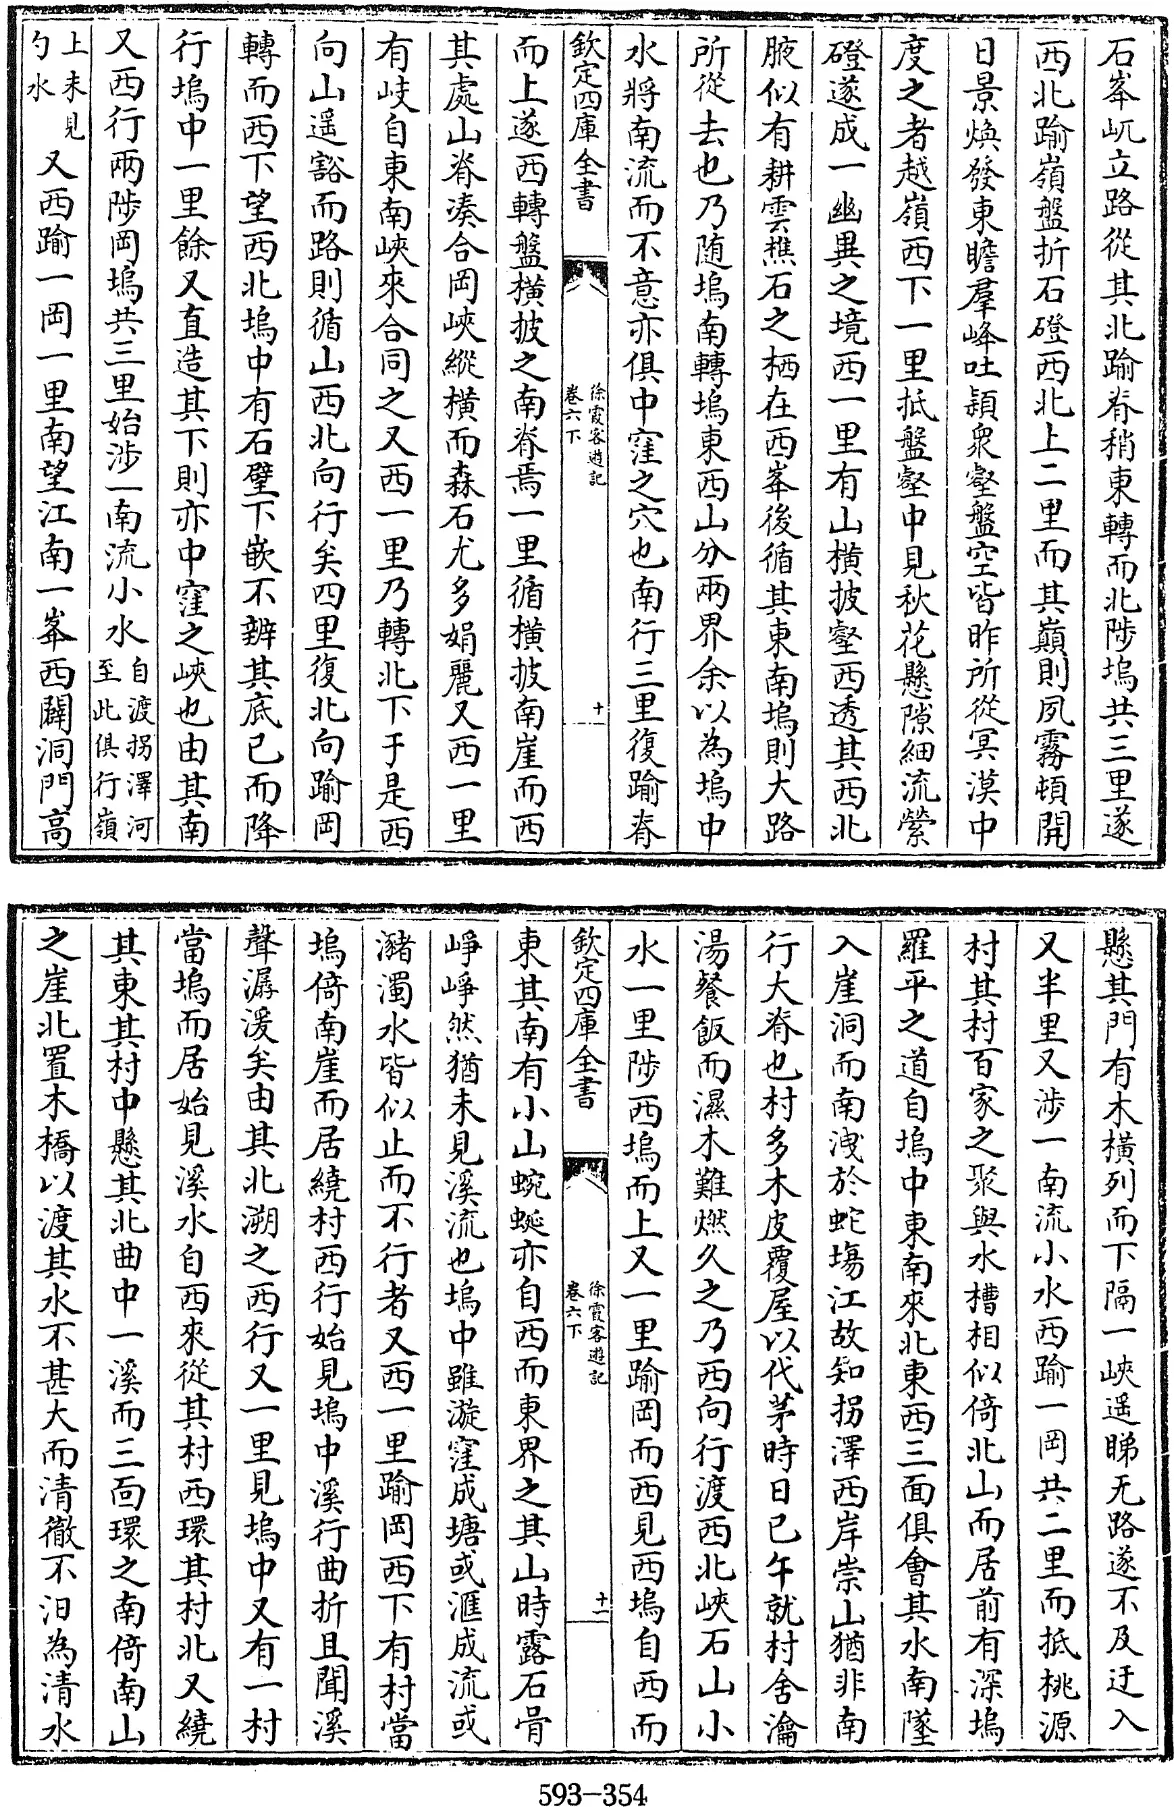 石峯屼立路從其北踰脊稍東轉而北陟塢共三里遂
西北踰嶺盤折石磴西北上二里而其巔則夙霧頓開
日景煥發東瞻羣峰吐頴衆壑盤空皆昨所從冥漠中
度之者越嶺西下一里抵盤壑中見秋花懸隙細流縈
磴遂成一幽異之境西一里有山橫披壑西透其西北
腋似有耕雲樵石之栖在西峯後循其東南塢則大路
所從去也乃随塢南轉塢東西山分兩界余以為塢中
水將南流而不意亦俱中窪之穴也南行三里復踰脊
欽定四庫全書
徐霞客遊記
卷六下
十
而上遂西轉盤橫披之南脊焉一里循橫披南崖而西
其處山脊湊合岡峽縱橫而森石尤多娟麗又西一里
有岐自東南峽來合同之又西一里乃轉北下于是西
向山遥豁而路則循山西北向行矣四里復北向踰岡
轉而西下望西北塢中有石壁下嵌不辨其底已而降
行塢中一里餘又直造其下則亦中窪之峽也由其南
又西行兩陟岡塢共三里始涉一南流小水自渡拐澤河
至此俱行嶺
上未見
勺水又西踰一岡一里南望江南一峯西闢洞門高
懸其門有木橫列而下隔一峽遥睇无路遂不及迂入
又半里又涉一南流小水西踰一岡共二里而抵桃源
村其村百家之聚與水槽相似倚北山而居前有深塢
羅平之道自塢中東南來北東西三面俱會其水南墜
入崖洞而南洩於蛇塲江故知拐澤西岸崇山猶非南
行大脊也村多木皮覆屋以代茅時日已午就村舍瀹
湯餐飯而濕木難燃久之乃西向行渡西北峽石山小
水一里陟西塢而上又一里踰岡而西見西塢自西而
欽定四庫全書
徐霞客遊記
卷六下
十一
東其南有小山蜿蜒亦自西而東界之其山時露石骨
崢崢然猶未見溪流也塢中雖漩窪成塘或滙成流或
瀦濁水皆似止而不行者又西一里踰岡西下有村當
塢倚南崖而居繞村西行始見塢中溪行曲折且聞溪
聲潺湲矣由其北溯之西行又一里見塢中又有一村
當塢而居始見溪水自西來從其村西環其村北又繞
其東其村中懸其北曲中一溪而三面環之南倚南山
之崖北置木橋以渡其水不甚大而清徹不汨為清水
593-354